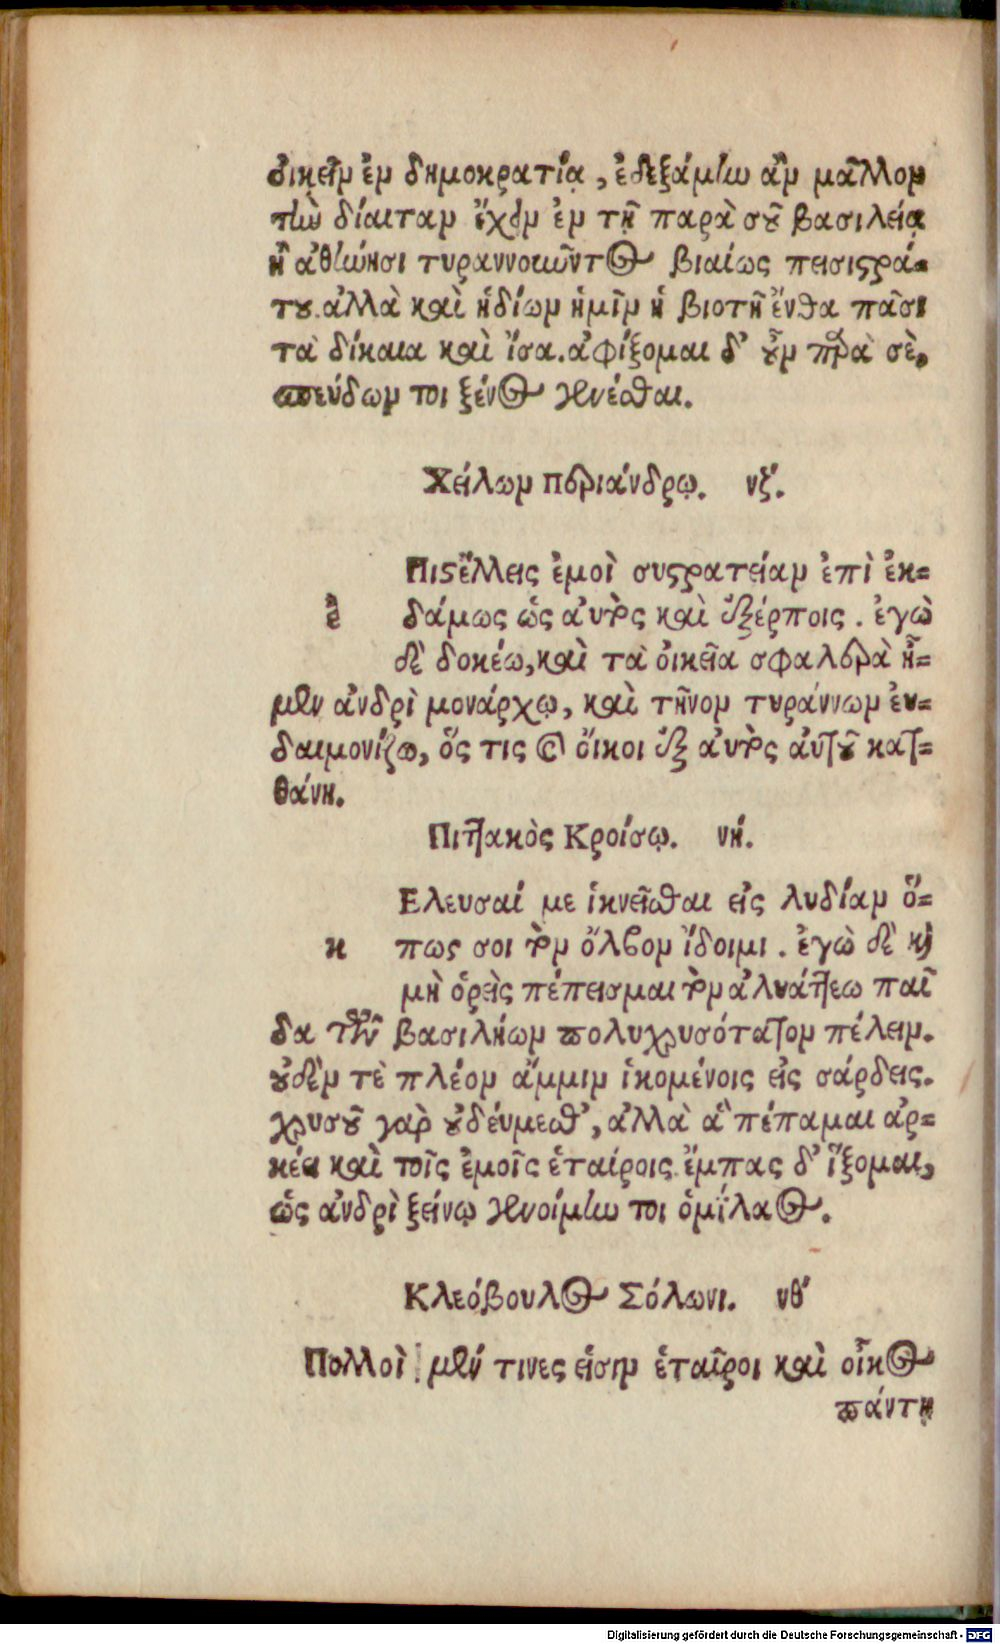 οἰκεῖν ἐν δημοκρατίᾳ, ἐδεξάμην ἂν μᾶλλον
τὴν δίαιταν ἔχειν ἐν τῇ παρὰ σοῦ βασιλείᾳ
ἢ ἀθήνησι τυραννοιῶντος βιαίως πεισιστρά-
του. ἀλλὰ καὶ ἡδίων ἡμῖν ἡ βιοτὴ ἔνθα πᾶσι
τὰ δίκαια καὶ ἴσα. ἀφίξομαι δ' οὖν παρὰ σὲ,
σπεύδων τοι ξένος γενέσθαι.
Χείλων Περιάνδρῳ. νζ΄.
Πιστέλλεις ἐμοὶ συστρατείαν ἐπὶ ἐκ-
ε δάμως ὡς αὐτὸς καὶ ἐξέρποις. ἐγὼ
δὲ δοκέω, καὶ τὰ οἰκεῖα σφαλερὰ ἦ-
μεν ἀνδρὶ μονάρχῳ, καὶ τῆνον τυράννων ἐυ-
δαιμονίζω, ὅς τις κ' οἴκοι ἐξ αὐτὸς αὑτοῦ κατ-
θάνῃ.
Πιττακὸς Κροίσῳ. νή.
Ελευσαί με ἱκνεῖσθαι εἰς λυδίαν ὅ-
κ πως σοι τὸν ὄλβον ἴδοιμι. ἐγὼ δὲ καὶ
μὴ ὁρεὶς πέπεισμαι τὸν ἀλυάττεω παῖ
δα τῶν βασιλήων πολυχρυσότατον πέλειν.
οὐδὲν τὲ πλέον ἄμμιν ἱκομένοις εἰς σάρδεις.
χρυσοῦ γὰρ οὐδεύμεσθ', ἀλλὰ ἃ πέπαμαι ἀρ-
κέα καὶ τοῖς ἐμοῖς ἑταίροις. ἔμπας δ' ἵξομαι,
ὡς ἀνδρὶ ξείνῳ γενοίμην τοι ὁμίλαος.
Κλεόβουλος Σόλωνι. νθ΄
Πολλοὶ μέν τινες εἰσιν ἑταῖροι καὶ οἶκος
πάντη
Digitalisierung gefördert durch die Deutsche Forschungsgemeinschaft - DFG